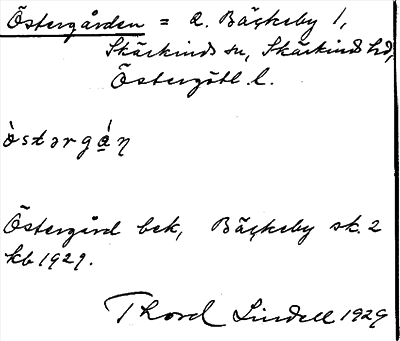 Östergården = a. Bäckeby 1,
Skärkinds sn, Skärkinds hd,
Östergötl. l.
òstərgá̱ṇ
Östergård bek, Bäckeby sk. 2
kb 1929.
Thord Lindell 1929